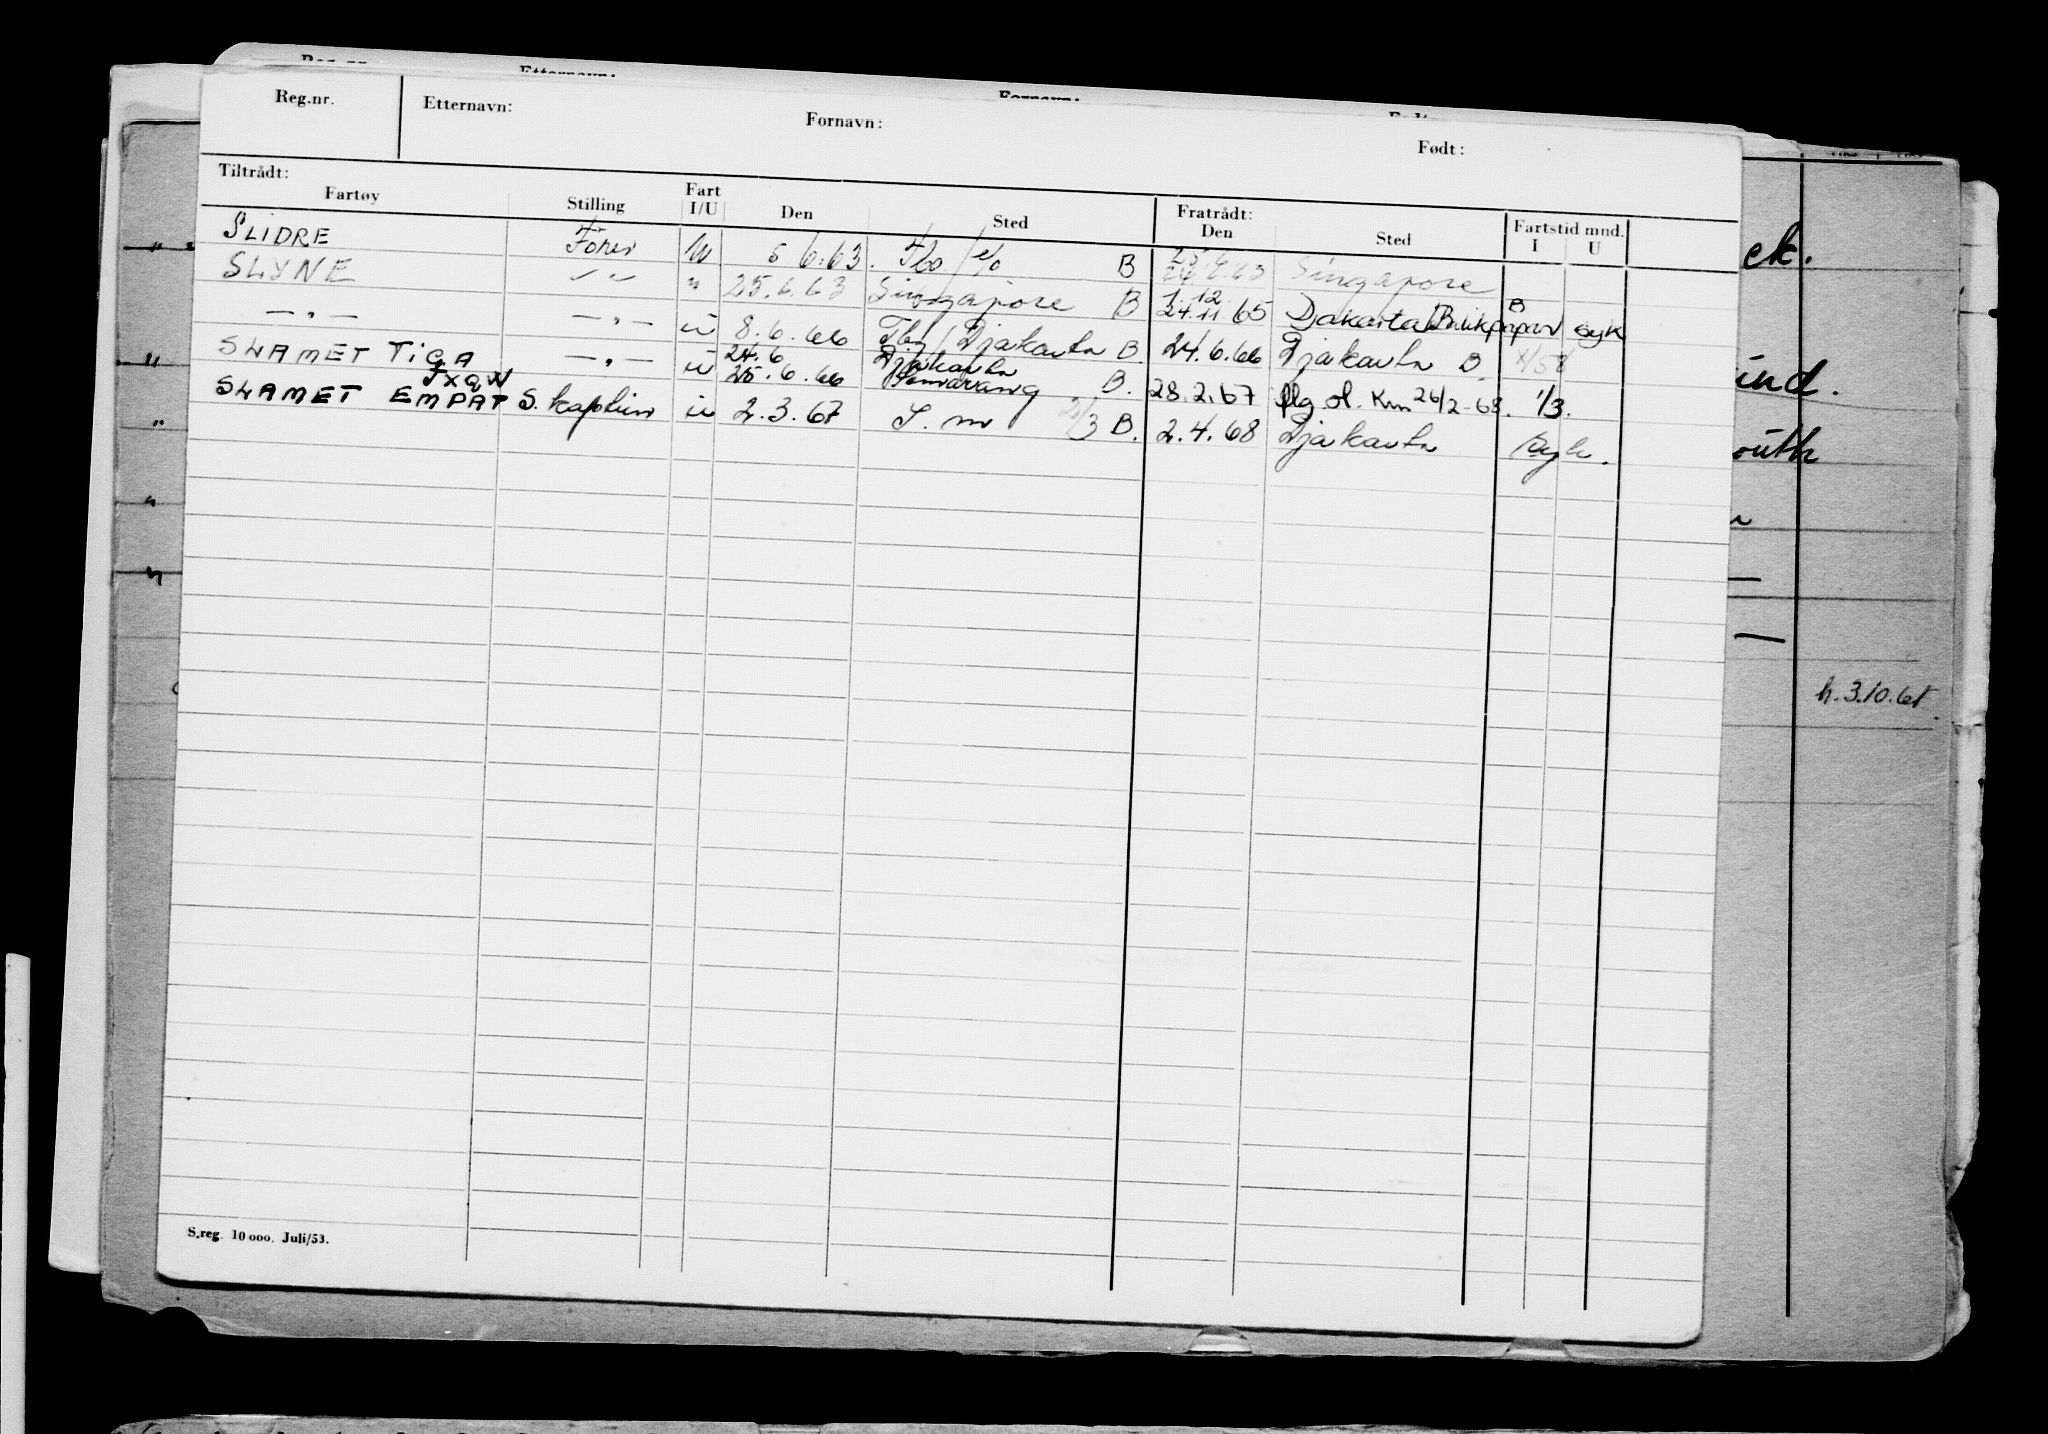 Reg.nr. Etternavn: Fornavn: Født:
Tiltrådt: Fratrådt: Fartstid mnd.
Fartøy Stilling Fart I/U Den Sted Den Sted I U
SLIDRE Förer U 5 6.63. Fbo. B Singapore
SLYNE " 25.6.63 Singapore B 1.12 24.11.65 Djakarta B syk
— " — — " — u 8.6.66 Fbg / Djakarta B 24.6.66 Djakarta B
SLAMET TIGA — " — u 24.6 25.6.66 Djakarta Semarang B. 28.2.67 flg. ol. Km 26/2-68. 1/3.
JXQW
SLAMET EMPAT S. kaptein u 2.3.67 S. m 2/3 B. 2.4.68 Djakarta syk.
S.reg. 10 000. Juli/53.
ck.
ind.
outh
h. 3.10.61.